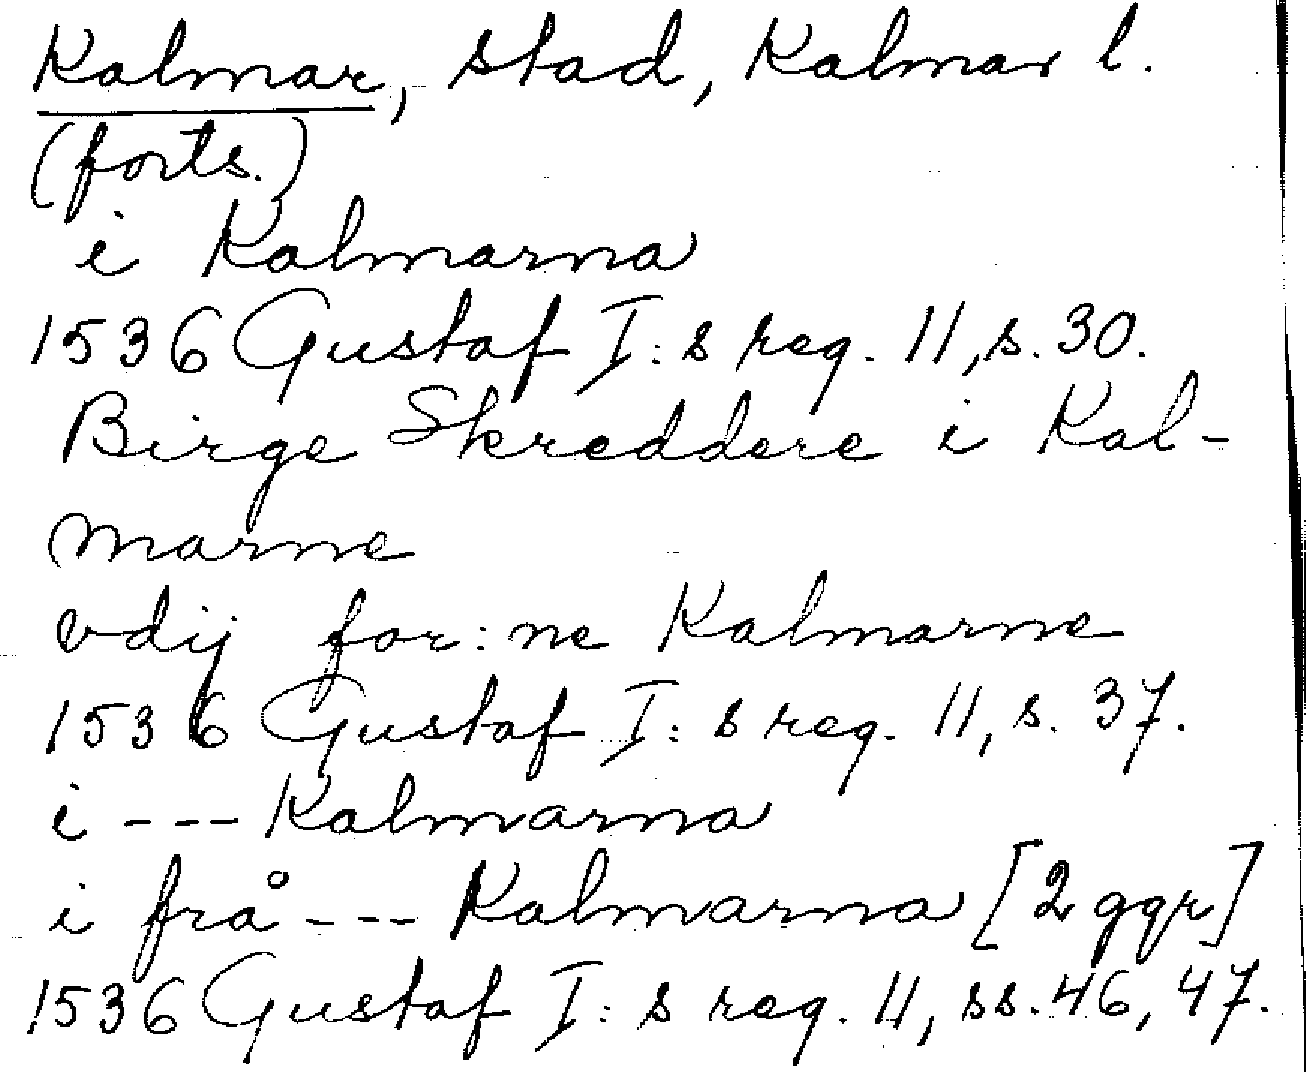 Kalmar, stad, Kalmar l.
(forts.)
i Kalmarna
1536 Gustaf I:s reg. 11, s. 30.
Birge Skreddere i Kal-
marne
vdij for:ne Kalmarne
1536 Gustaf I:s reg. 11, s. 37.
i --- Kalmarna
i frå --- Kalmarna [2 ggr]
1536 Gustaf I:s reg. 11, ss. 46, 47.